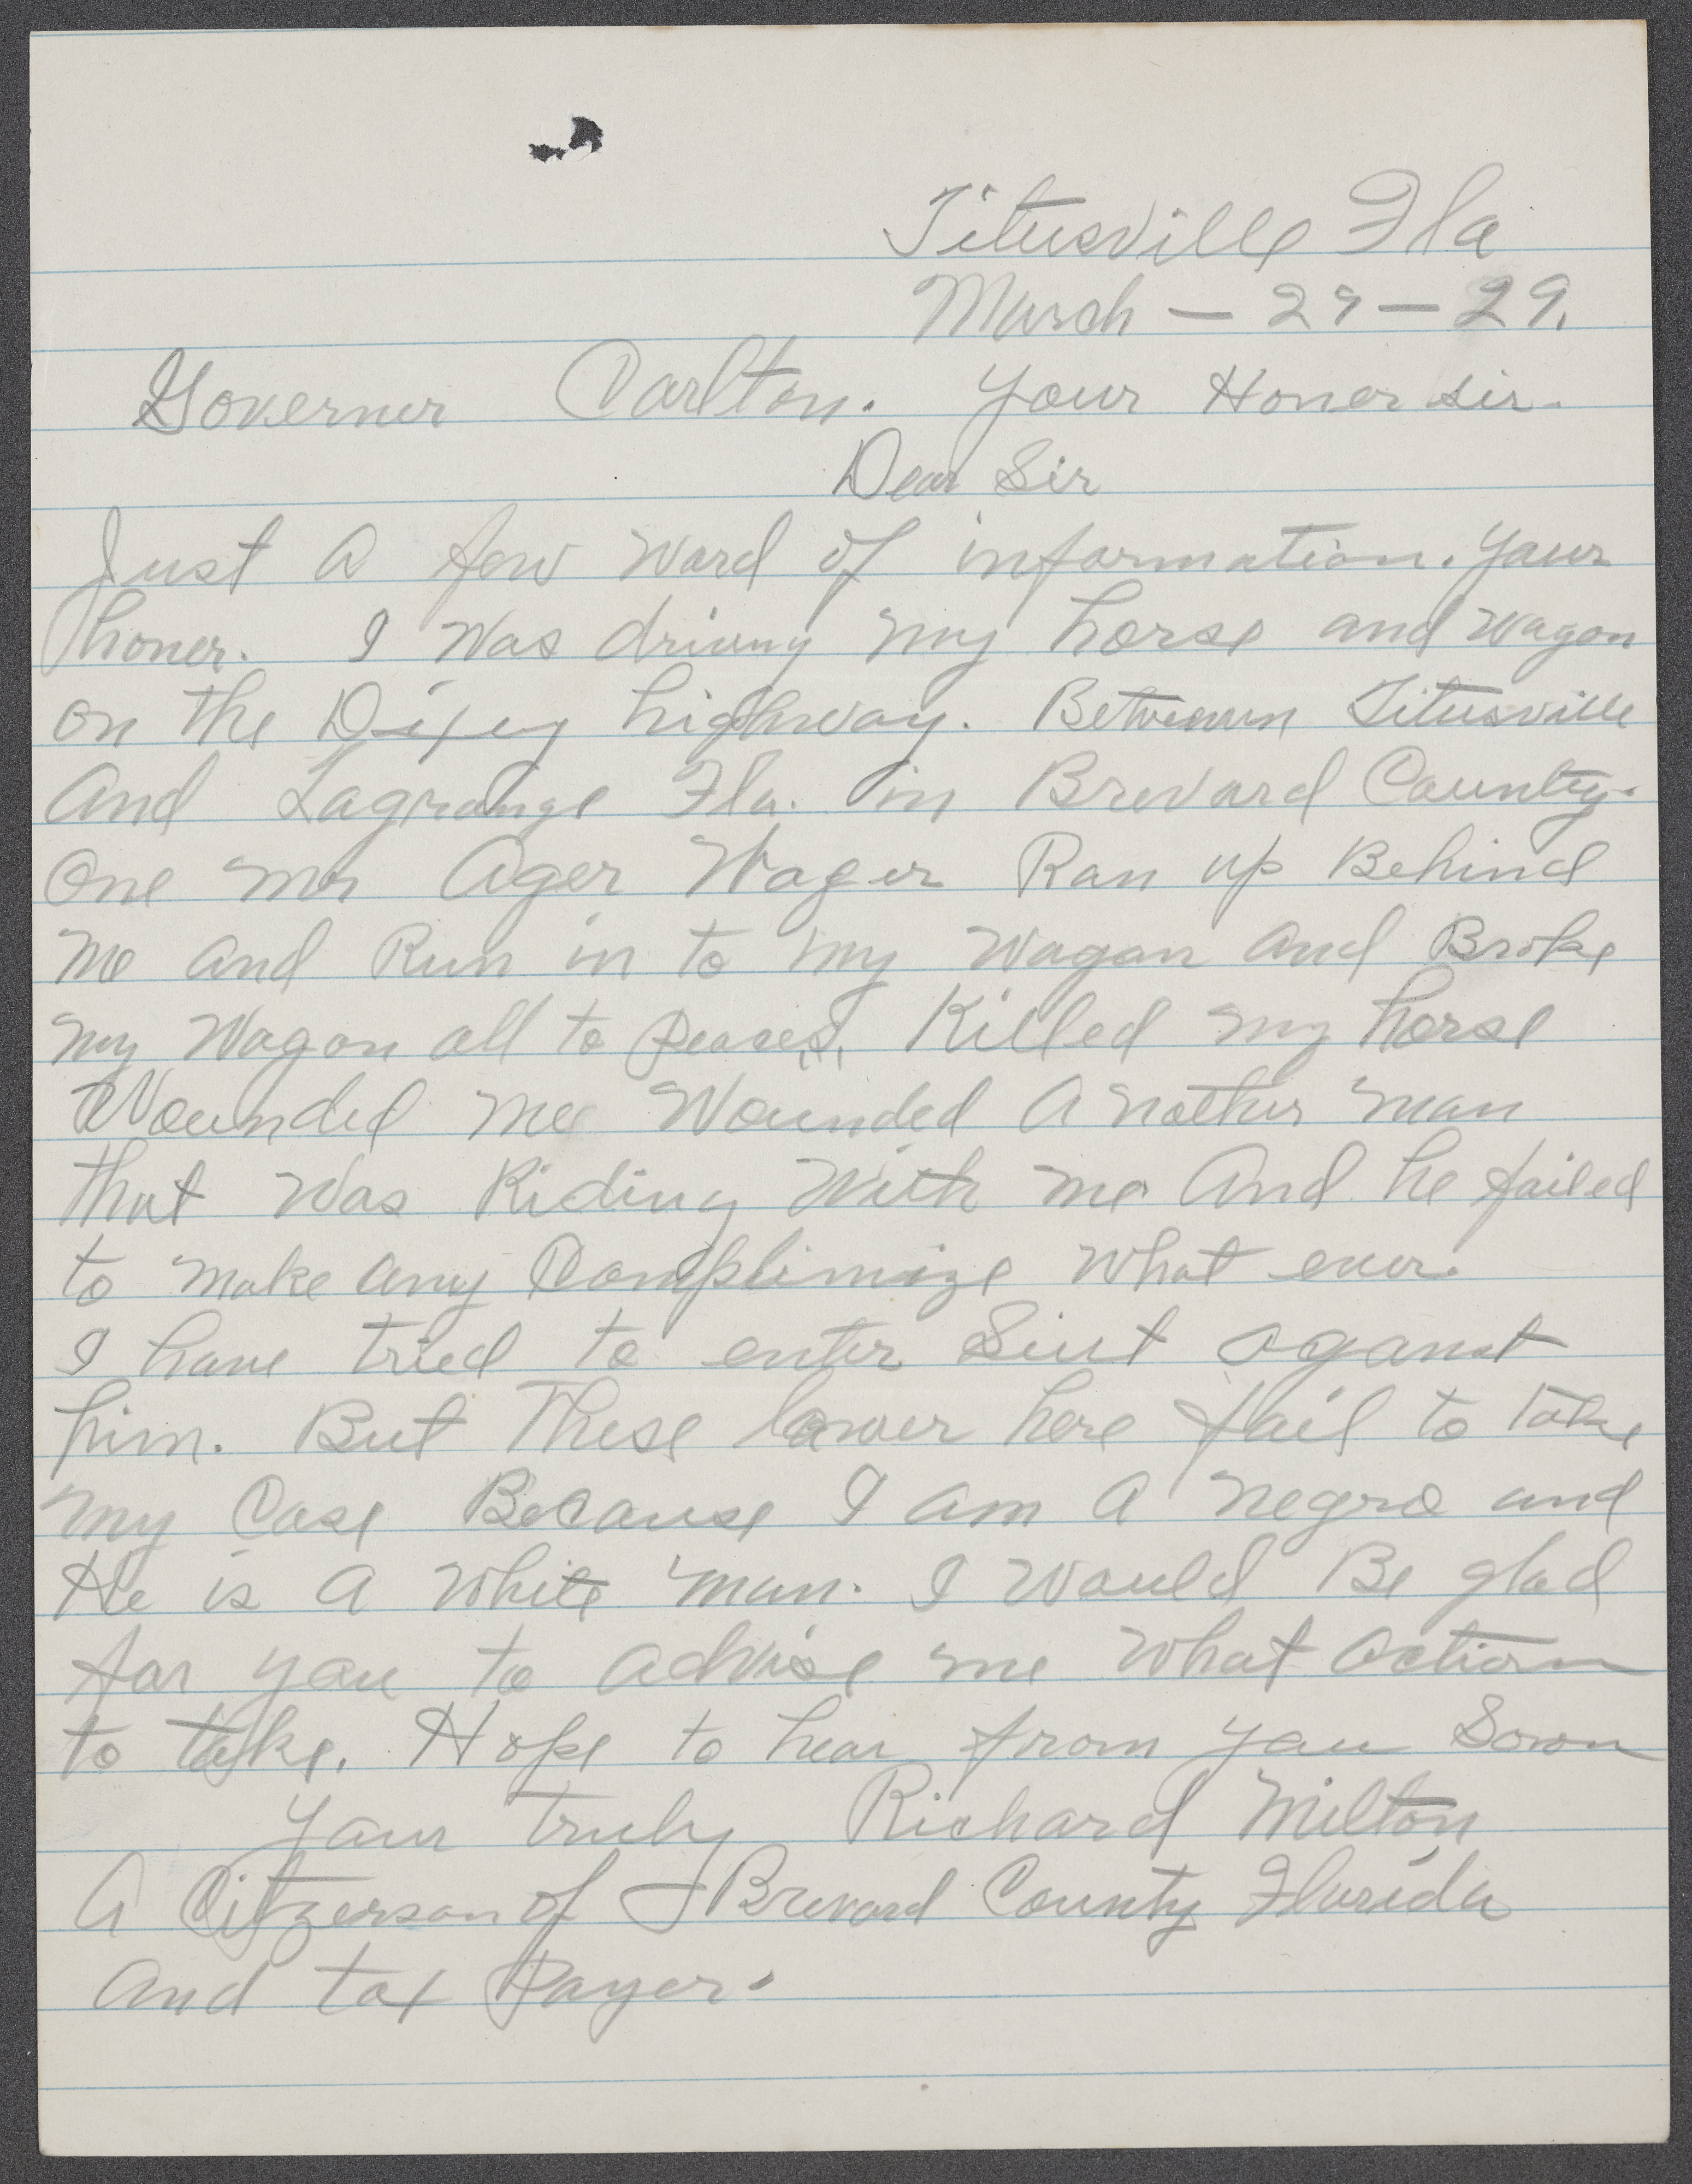 Titusville Fla
March - 29 - 29.
Governer Carlton. Your Honer sir.
Dear Sir
Just a few word of information. Your
honer. I was driving my horse and wagon
on the Dixey highway. Betweaun Titusville
and Lagrange Fla. in Brevard County.
One Mr Ager Wager Ran up Behind
me and Run in to my wagon and Broke
my Wagon all to peaces, Killed my horse
Wounded me Wounded a nother man
that was Riding With me And he failed
to make any Complimize what ever.
I have tried to enter Siut aganst
him. But These lawer here fail to take
my Case Because I am a negro and
He is a white man. I would Be glad
for you to advise me what action
to take. Hope to hear from you Soon
Your truly Richard Milton
A Citzerson of Brevard County Florida
and tax Payer.